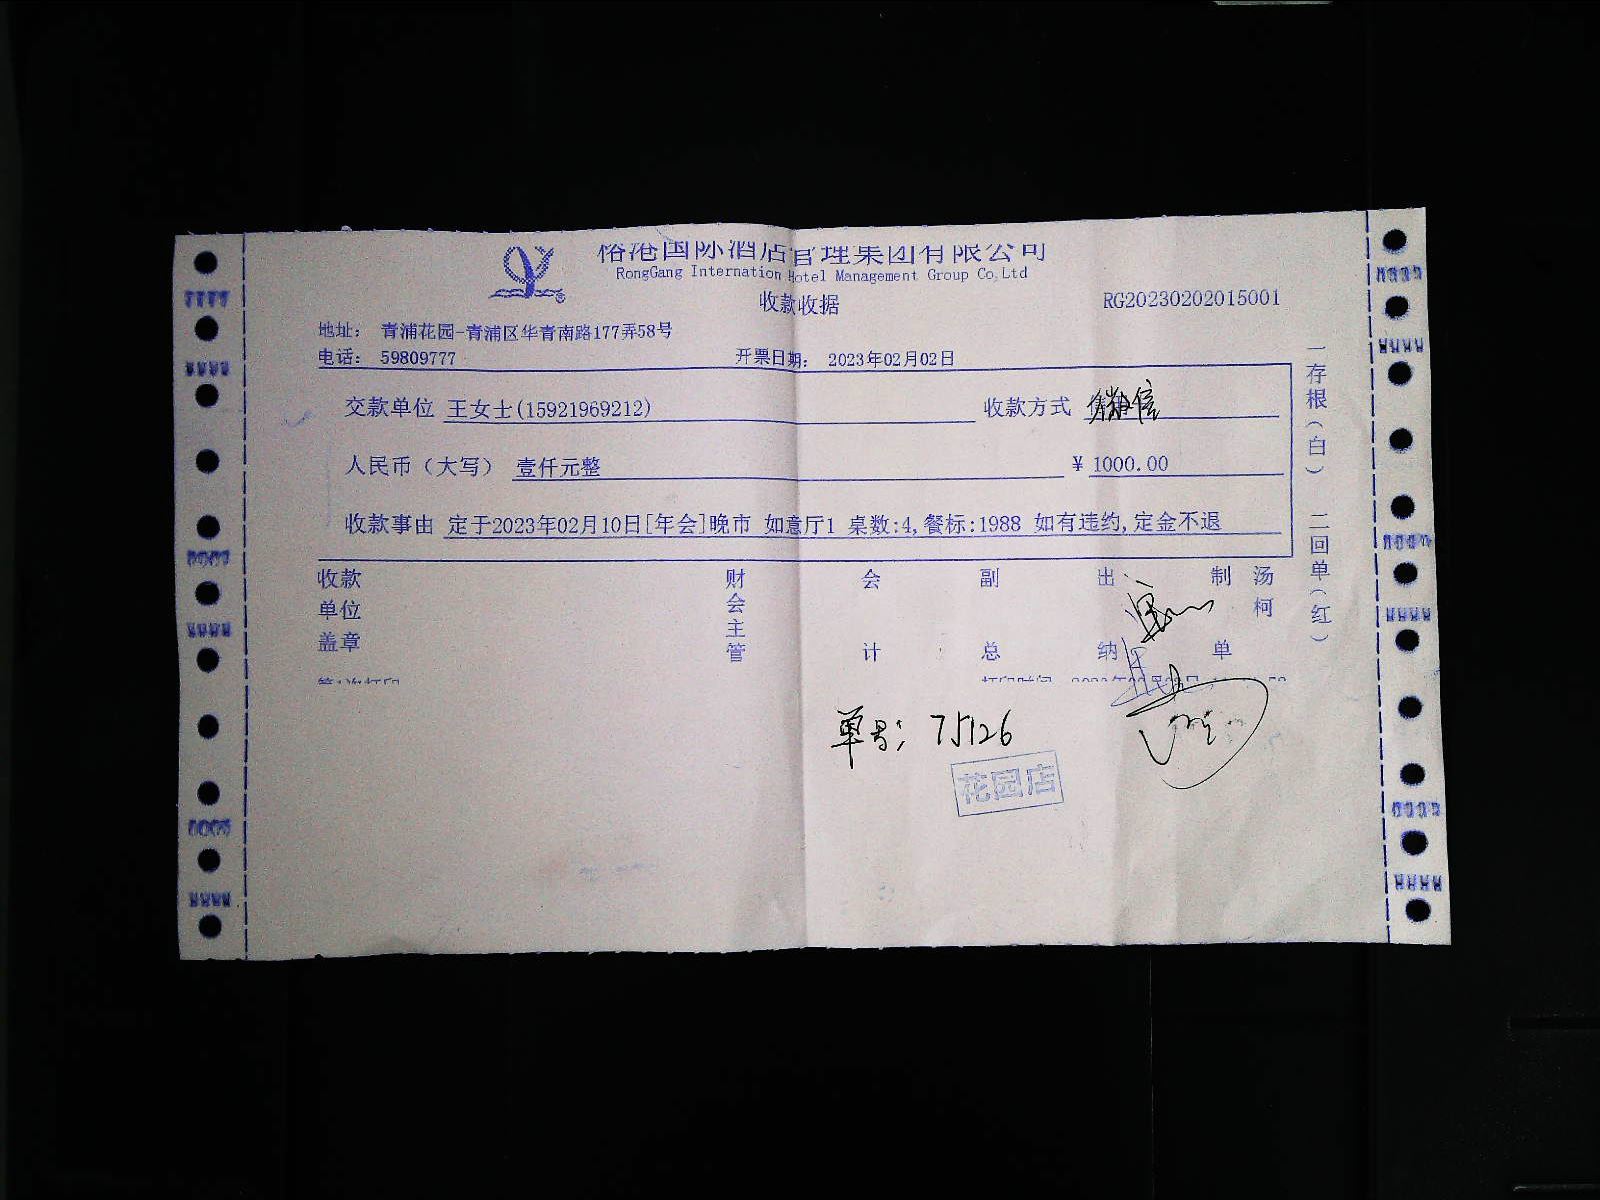 港国际酒店管理集团有限公司
RongGang Internation Hotel Management Group Co,Ltd
收款收据
RG20230202015001
地址： 青浦花园-青浦区华青南路177弄58号
电话： 59809777 开票日期： 2023年02月02日
交款单位 王女士(15921969212) 收款方式 微信
人民币（大写） 壹仟元整 ¥ 1000.00
收款事由 定于2023年02月10日[年会]晚市 如意厅1 桌数:4,餐标:1988 如有违约,定金不退
收款单位盖章 财会主管 会计 副总 出纳 制单 汤柯
一存根（白） 二回单（红）
单号: 75126
花园店